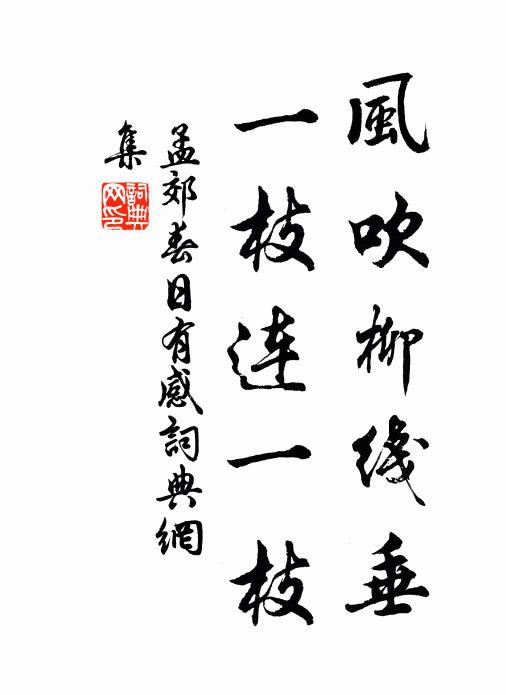 風吹柳线垂
一枝連一枝
孟郊春日有感詞典網
集
詞典
网印